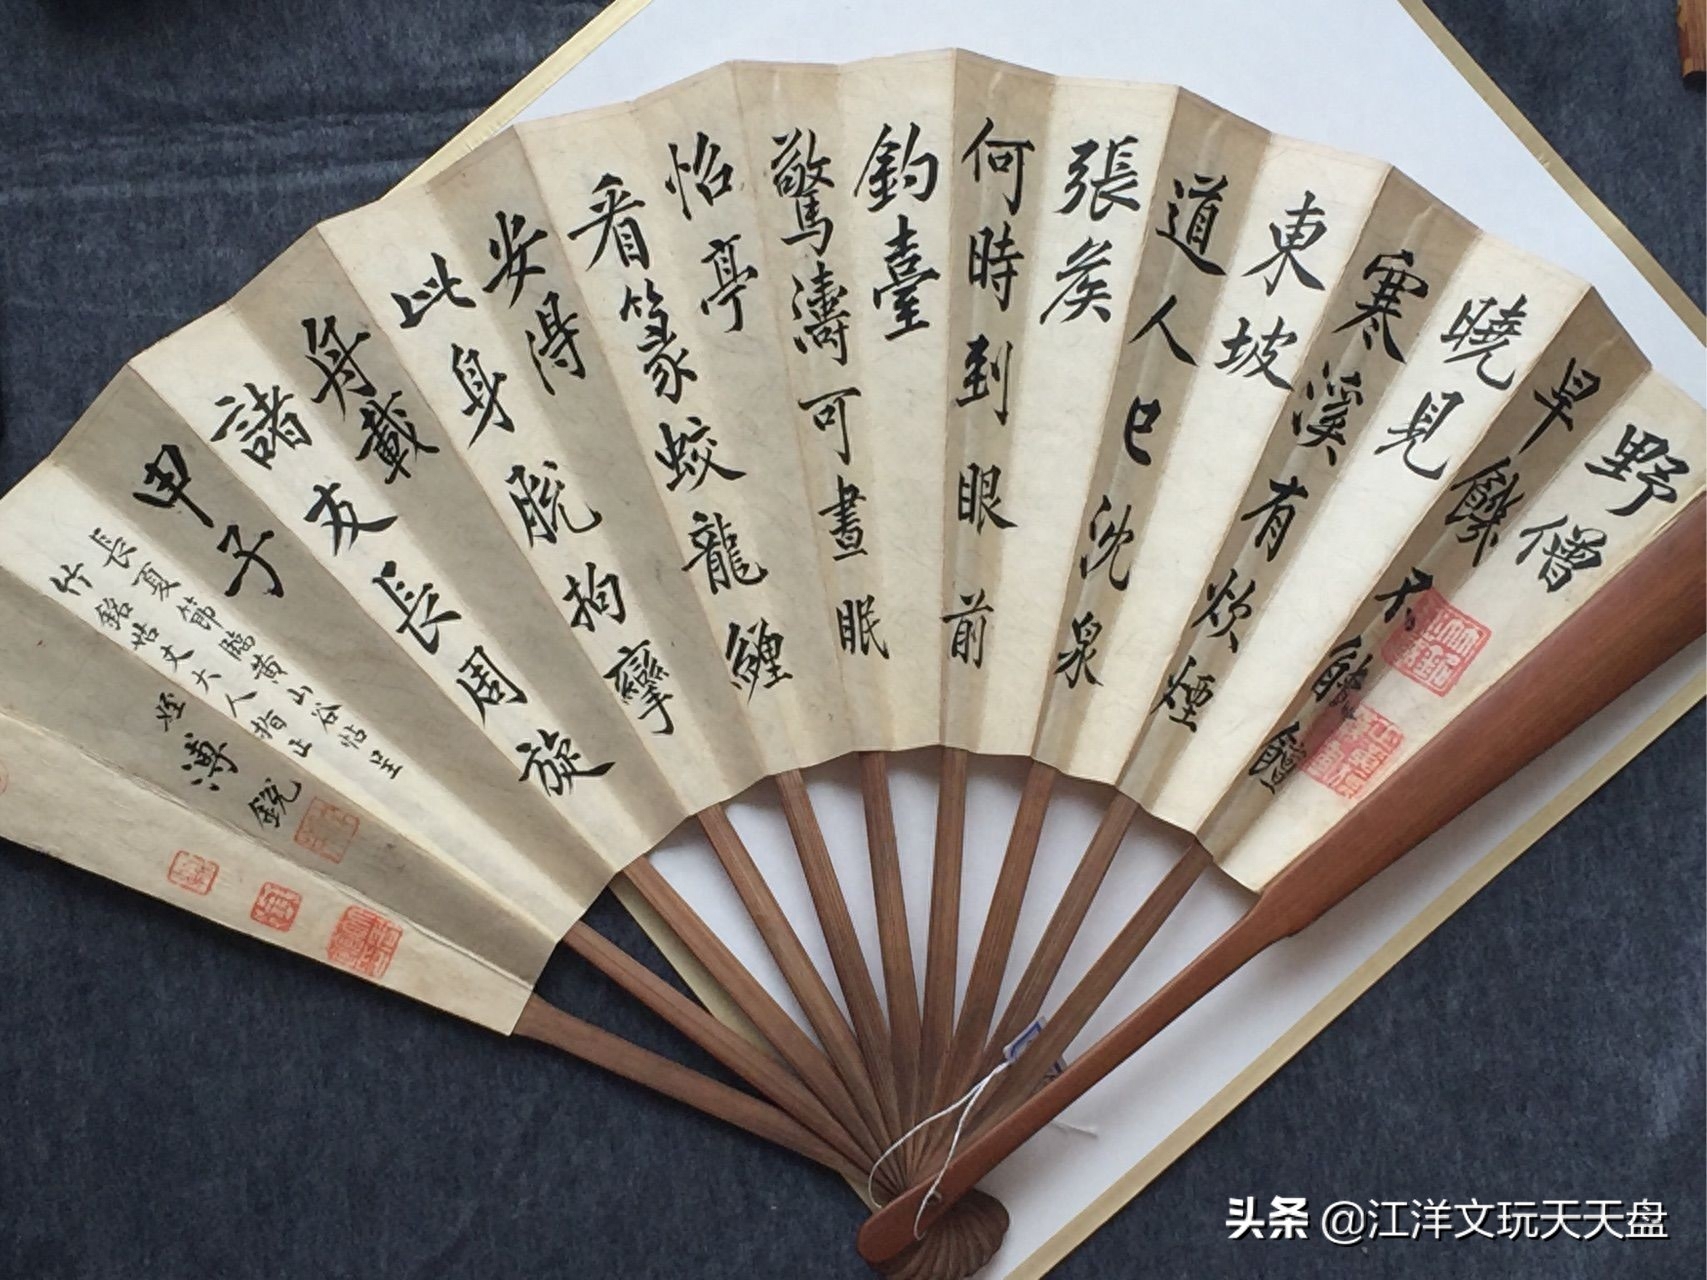 野僧
旱饑不能饘
曉見
寒溪有炊煙
東坡
道人已沈泉
張矦
何時到眼前
釣臺
驚濤可晝眠
怡亭
看篆蛟龍纏
安得
此身脫拘攣
舟載
諸友長周旋
甲子
長夏節臨黃山谷帖呈
竹銘姑丈大人指正
姪溥銳
头条 @江洋文玩天天盘